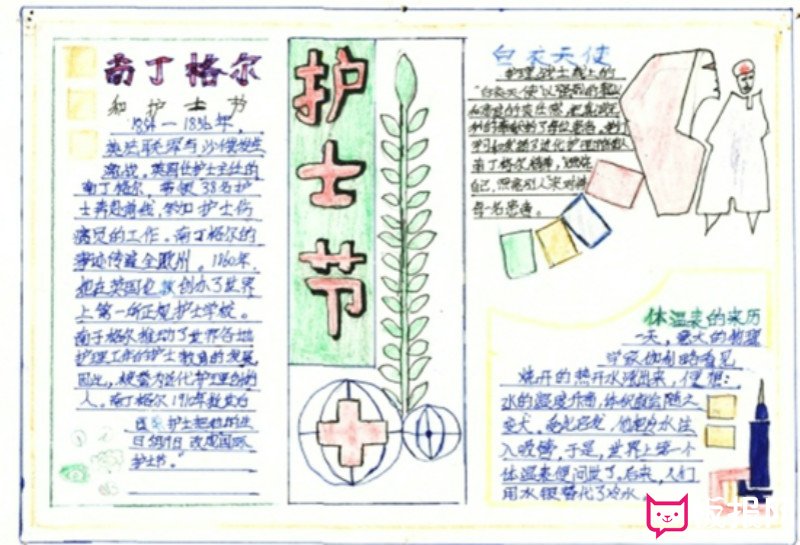 南丁格尔
和护士节
1854—1856年，
英法联军与沙俄发生
激战。英国任护士主任的
南丁格尔，带领38名护
士奔赴前线，参加护士伤
病员的工作。南丁格尔的
事迹传遍全欧州。1860年，
她在英国创办了世界
上第一所正规护士学校。
南丁格尔推动了世界各地
护理工作和护士教育的发展，
因此，被誉为近代护理创始
人。南丁格尔1910年逝世后
护士把她的生
日5月12日改成国际
护士节。"
护士节
白衣天使
护理战士线上的
"白衣天使"以强烈的
南丁格尔精神，"燃烧
自己，照亮别人"来对待
每一名患者。
体温表的来历
一天，意大的物理
学家伽利略看见
烧开的热开水溅出来，便想：
水的温度升高，体积就会随之
变大。受此启发，他把水注
入吸管，于是，世界上第一个
体温表便问世了。后来，人们
用水银替代了冷水。